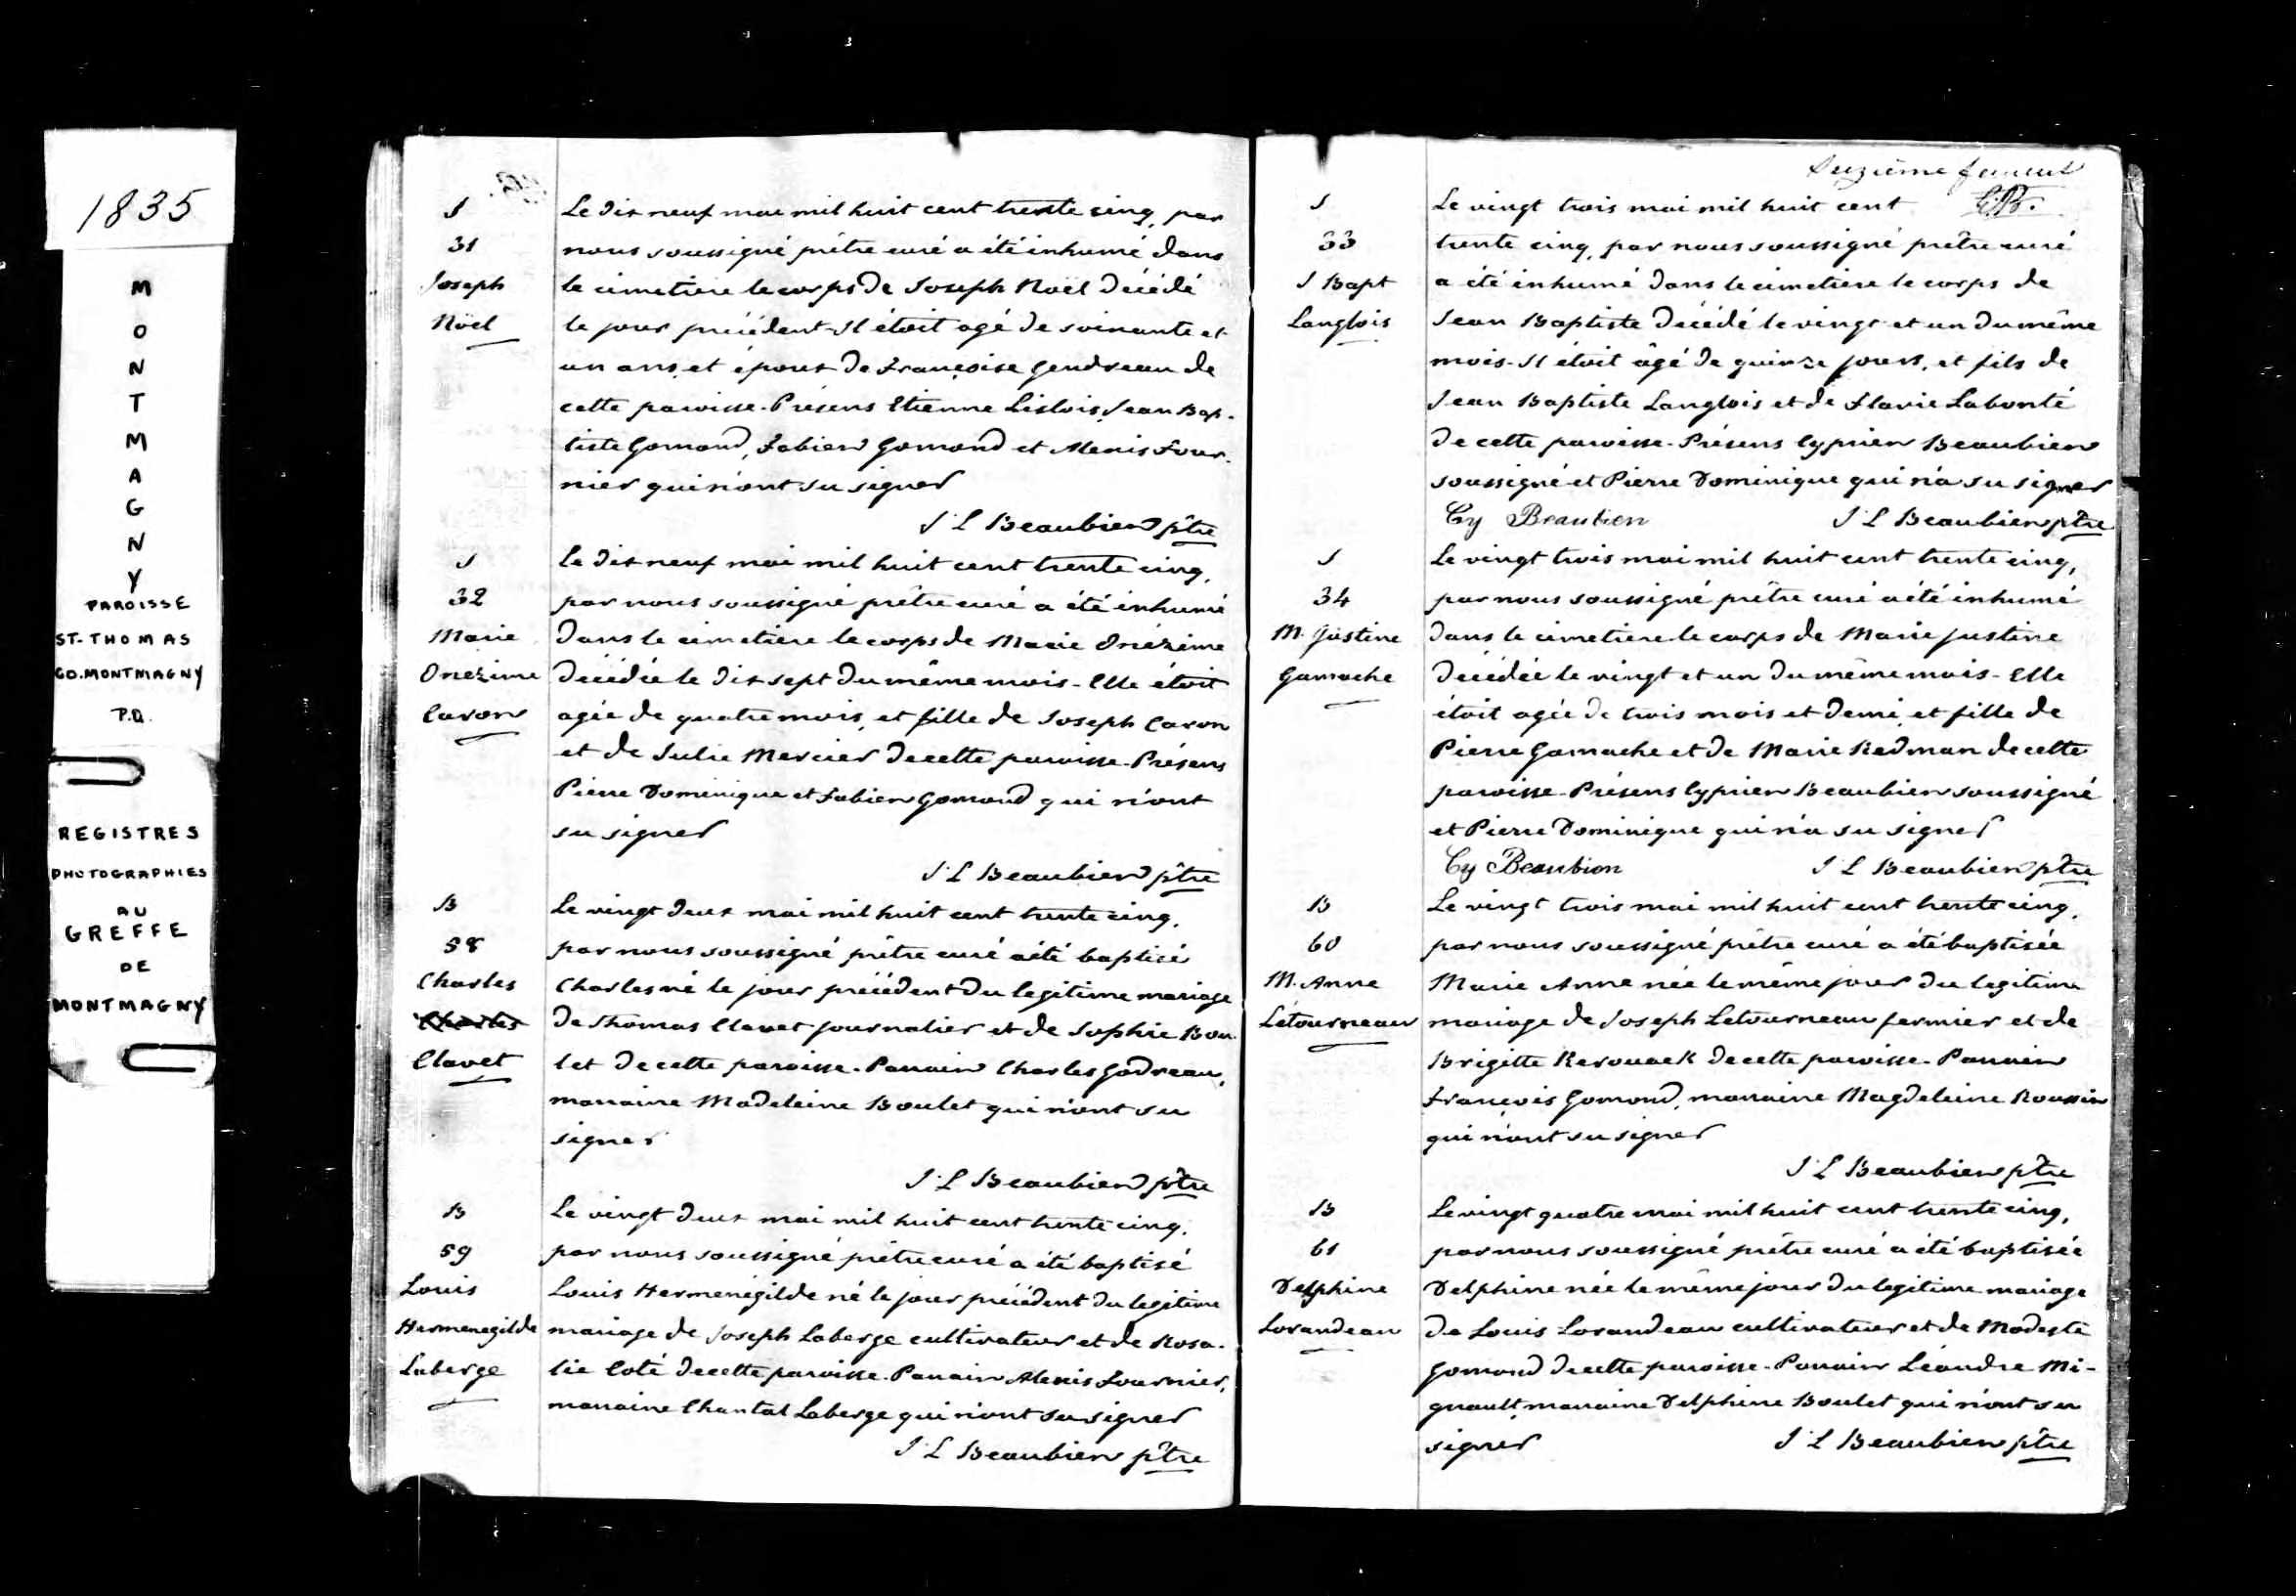 1835
M
O
N
T
M
A
G
N
Y
PAROISSE
ST-THOMAS
CO. MONTMAGNY
P.Q.
REGISTRES
PHOTOGRAPHIES
AU
GREFFE
DE
MONTMAGNY
S
31
Joseph
Nöel
Le dix neuf mai mil huit cent trente cinq, par
nous soussigné prêtre curé a été inhumé dans
le cimetiere le corps de Joseph Noël décédé
le jour précédent - Il étoit agé de soixante et
un ans, et époux de Françoise Gendreau de
cette paroisse - Présens Etienne Lislois, Jean Bap-
tiste Gomond, Fabien Gomond et Alexis Four-
nier qui n'ont su signer
J. L Beaubien ptre
S
32
Marie
Onezime
Caron
Le dix neuf mai mil huit cent trente cinq,
par nous soussigné prêtre curé a été inhumé
dans le cimetiere le corps de Marie Onézime
décédée le dix sept du même mois - Elle étoit
agée de quatre mois, et fille de Joseph Caron
et de Julie Mercier de cette paroisse - Présens
Pierre Dominique et Fabien Gomond qui n'ont
su signer
J. L Beaubien ptre
B
58
Charles
Charles
Clavet
Le vingt deux mai mil huit cent trente cinq,
par nous soussigné prêtre curé a été baptisé
Charles né le jour précédent du legitime mariage
de Thomas Clavet journalier et de Sophie Bou-
let de cette paroisse - Parrain Charles Godreau,
marraine Madeleine Boulet qui n'ont su
signer
J. L Beaubien ptre
B
59
Louis
Hermenegilde
Laberge
Le vingt deux mai mil huit cent trente cinq,
par nous soussigné prêtre curé a été baptisé
Louis Hermenégilde né le jour précédent du legitime
mariage de Joseph Laberge cultivateur et de Rosa-
lie Coté de cette paroisse - Parrain Alexis Fournier,
marraine Chantal Laberge qui n'ont su signer
J. L Beaubien ptre
S
33
J Bapt
Langlois
Le vingt trois mai mil huit cent
trente cinq, par nous soussigné prêtre curé
a été inhumé dans le cimetiere le corps de
Jean Baptiste décédé le vingt et un du même
mois - Il étoit âgé de quinze jours, et fils de
Jean Baptiste Langlois et de Flavie Labonté
de cette paroisse - Présens Cyprien Beaubien
soussigné et Pierre Dominique qui n'a su signer
Cy Beaubien J. L Beaubien ptre
S
34
M. Justine
Gamache
Le vingt trois mai mil huit cent trente cinq,
par nous soussigné prêtre curé a été inhumé
dans le cimetiere le corps de Marie Justine
décédée le vingt et un du même mois - Elle
étoit agée de trois mois et demi, et fille de
Pierre Gamache et de Marie Redman de cette
paroisse - Présens Cyprien Beaubien soussigné
et Pierre Dominique qui n'a su signer
Cy Beaubien J. L Beaubien ptre
B
60
M. Anne
Létourneau
Le vingt trois mai mil huit cent trente cinq,
par nous soussigné prêtre curé a été baptisée
Marie Anne née le même jour du legitime
mariage de Joseph Letourneau fermier et de
Brigitte Kerouack de cette paroisse - Parrain
François Gomond, marraine Magdeleine Roussin
qui n'ont su signer
J. L Beaubien ptre
B
61
Delphine
Lorandeau
Le vingt quatre mai mil huit cent trente cinq,
par nous soussigné prêtre curé a été baptisée
Delphine née le même jour du legitime mariage
de Louis Lorandeau cultivateur et de Modeste
Gomond de cette paroisse - Parrain Léandre Mi-
gnault, marraine Delphine Boulet qui n'ont su
signer J. L Beaubien ptre